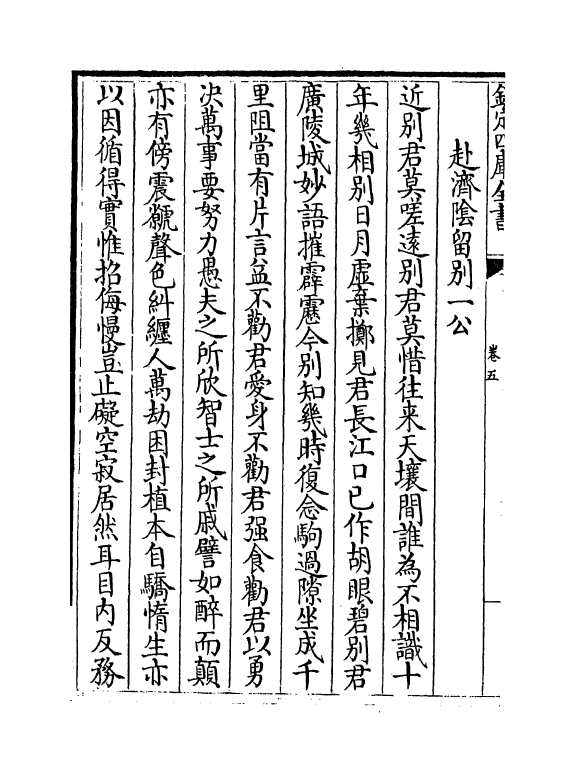 欽定四庫全書
卷五
赴濟陰留別一公
近別君莫嗟遠別君莫惜往来天壤間誰為不相識十
年幾相別日月虛棄擲見君長江口已作胡眼碧別君
廣陵城妙語摧霹靂今別知幾時復念駒過隙坐成千
里阻當有片言益不勸君愛身不勸君强食勸君以勇
决萬事要努力愚夫之所欣智士之所戚譬如醉而顛
亦有傍震虩聲色糾纏人萬劫困封植本自驕惰生亦
以因循得實惟招侮慢豈止礙空寂居然耳目内反務